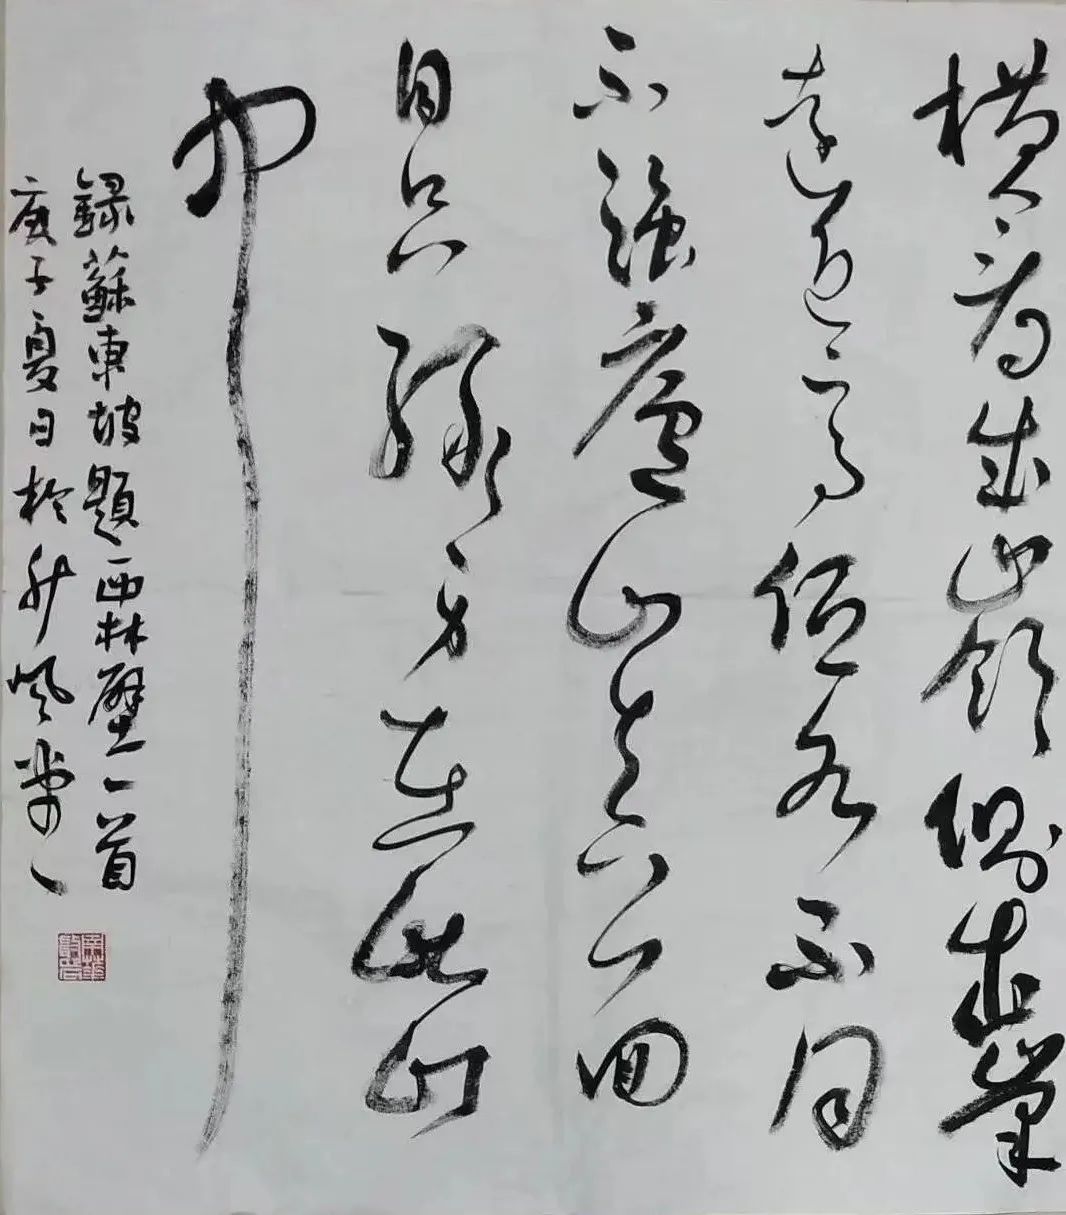 横看成嶺側成峯
遠近高低各不同
不識廬山真面
目只緣身在此山
中
錄蘇東坡題西林壁一首
庚子夏日於升風堂